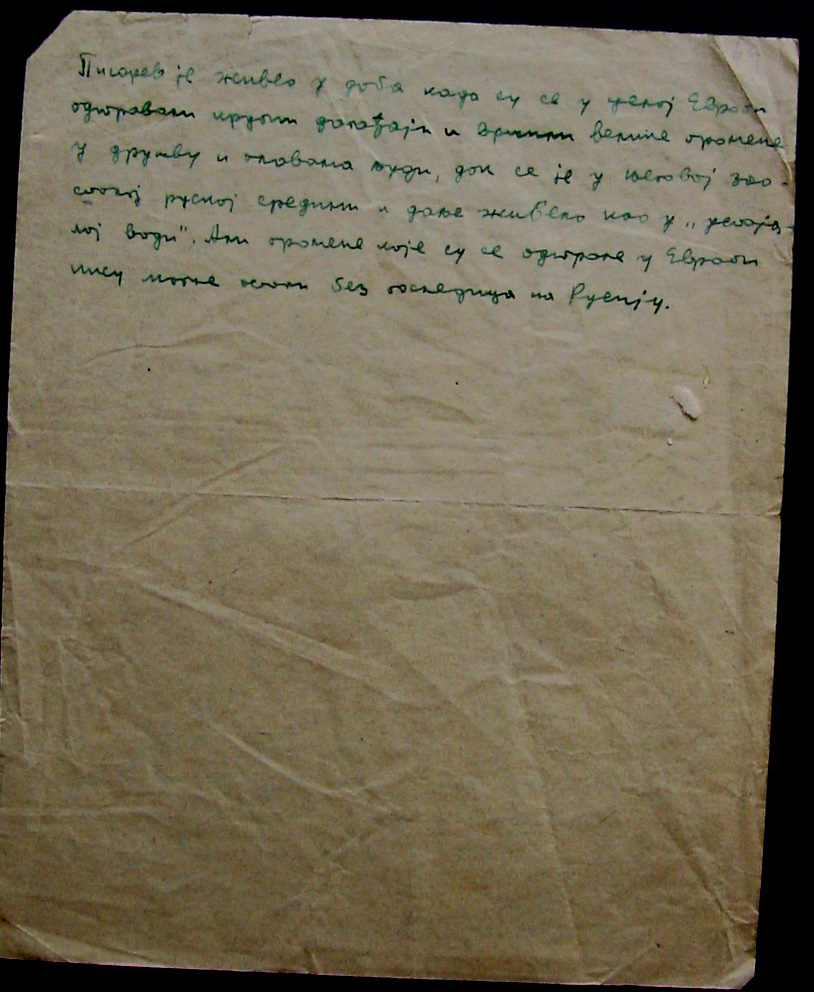 Писарев је живео у доба када су се у целој Европи
одигравали крупни догађаји и вршили велике промене
у друштву и главама људи, док се је у његовој зао-
сталој руској средини и даље живело као у „устаја-
лој води". Али промене које су се одиграле у Европи
нису могле остати без последица на Русију.